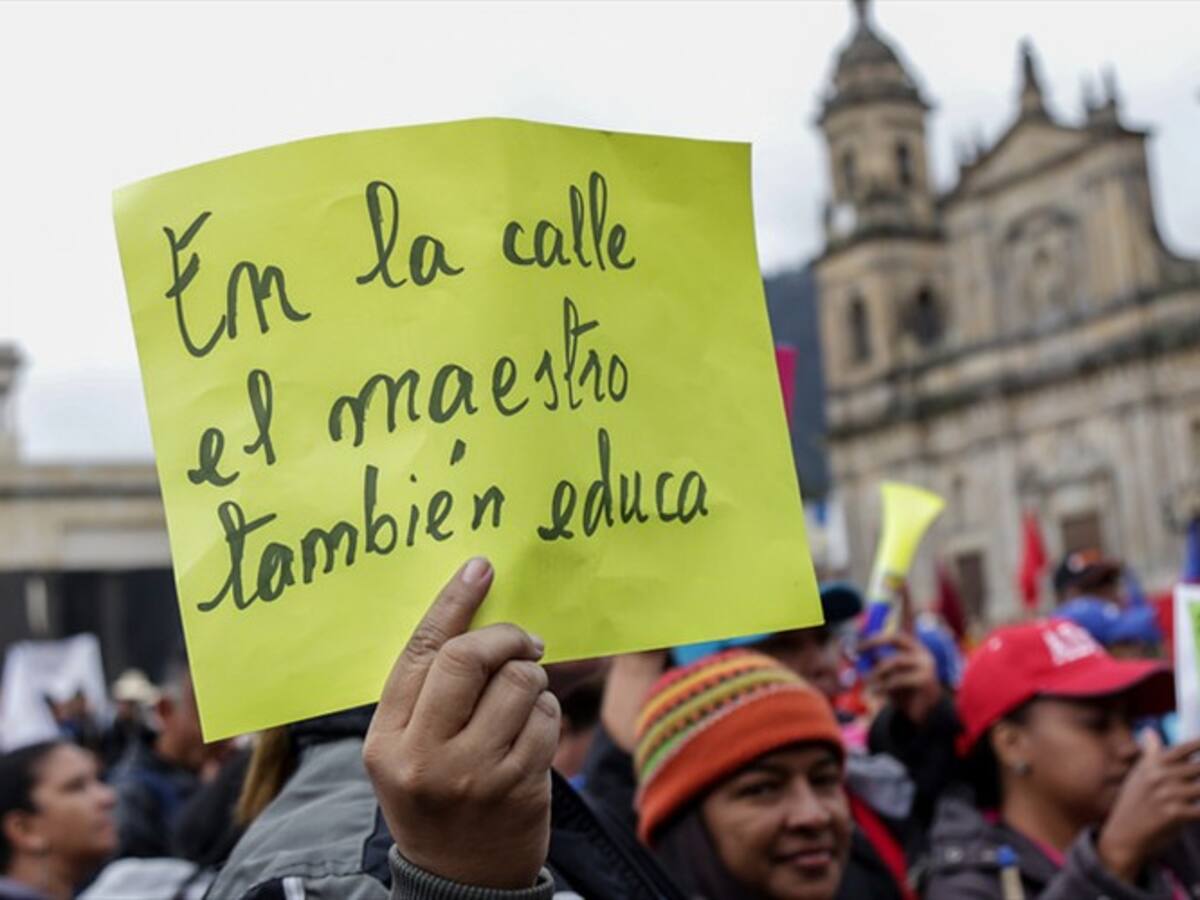 En la calle
el maestro
también educa